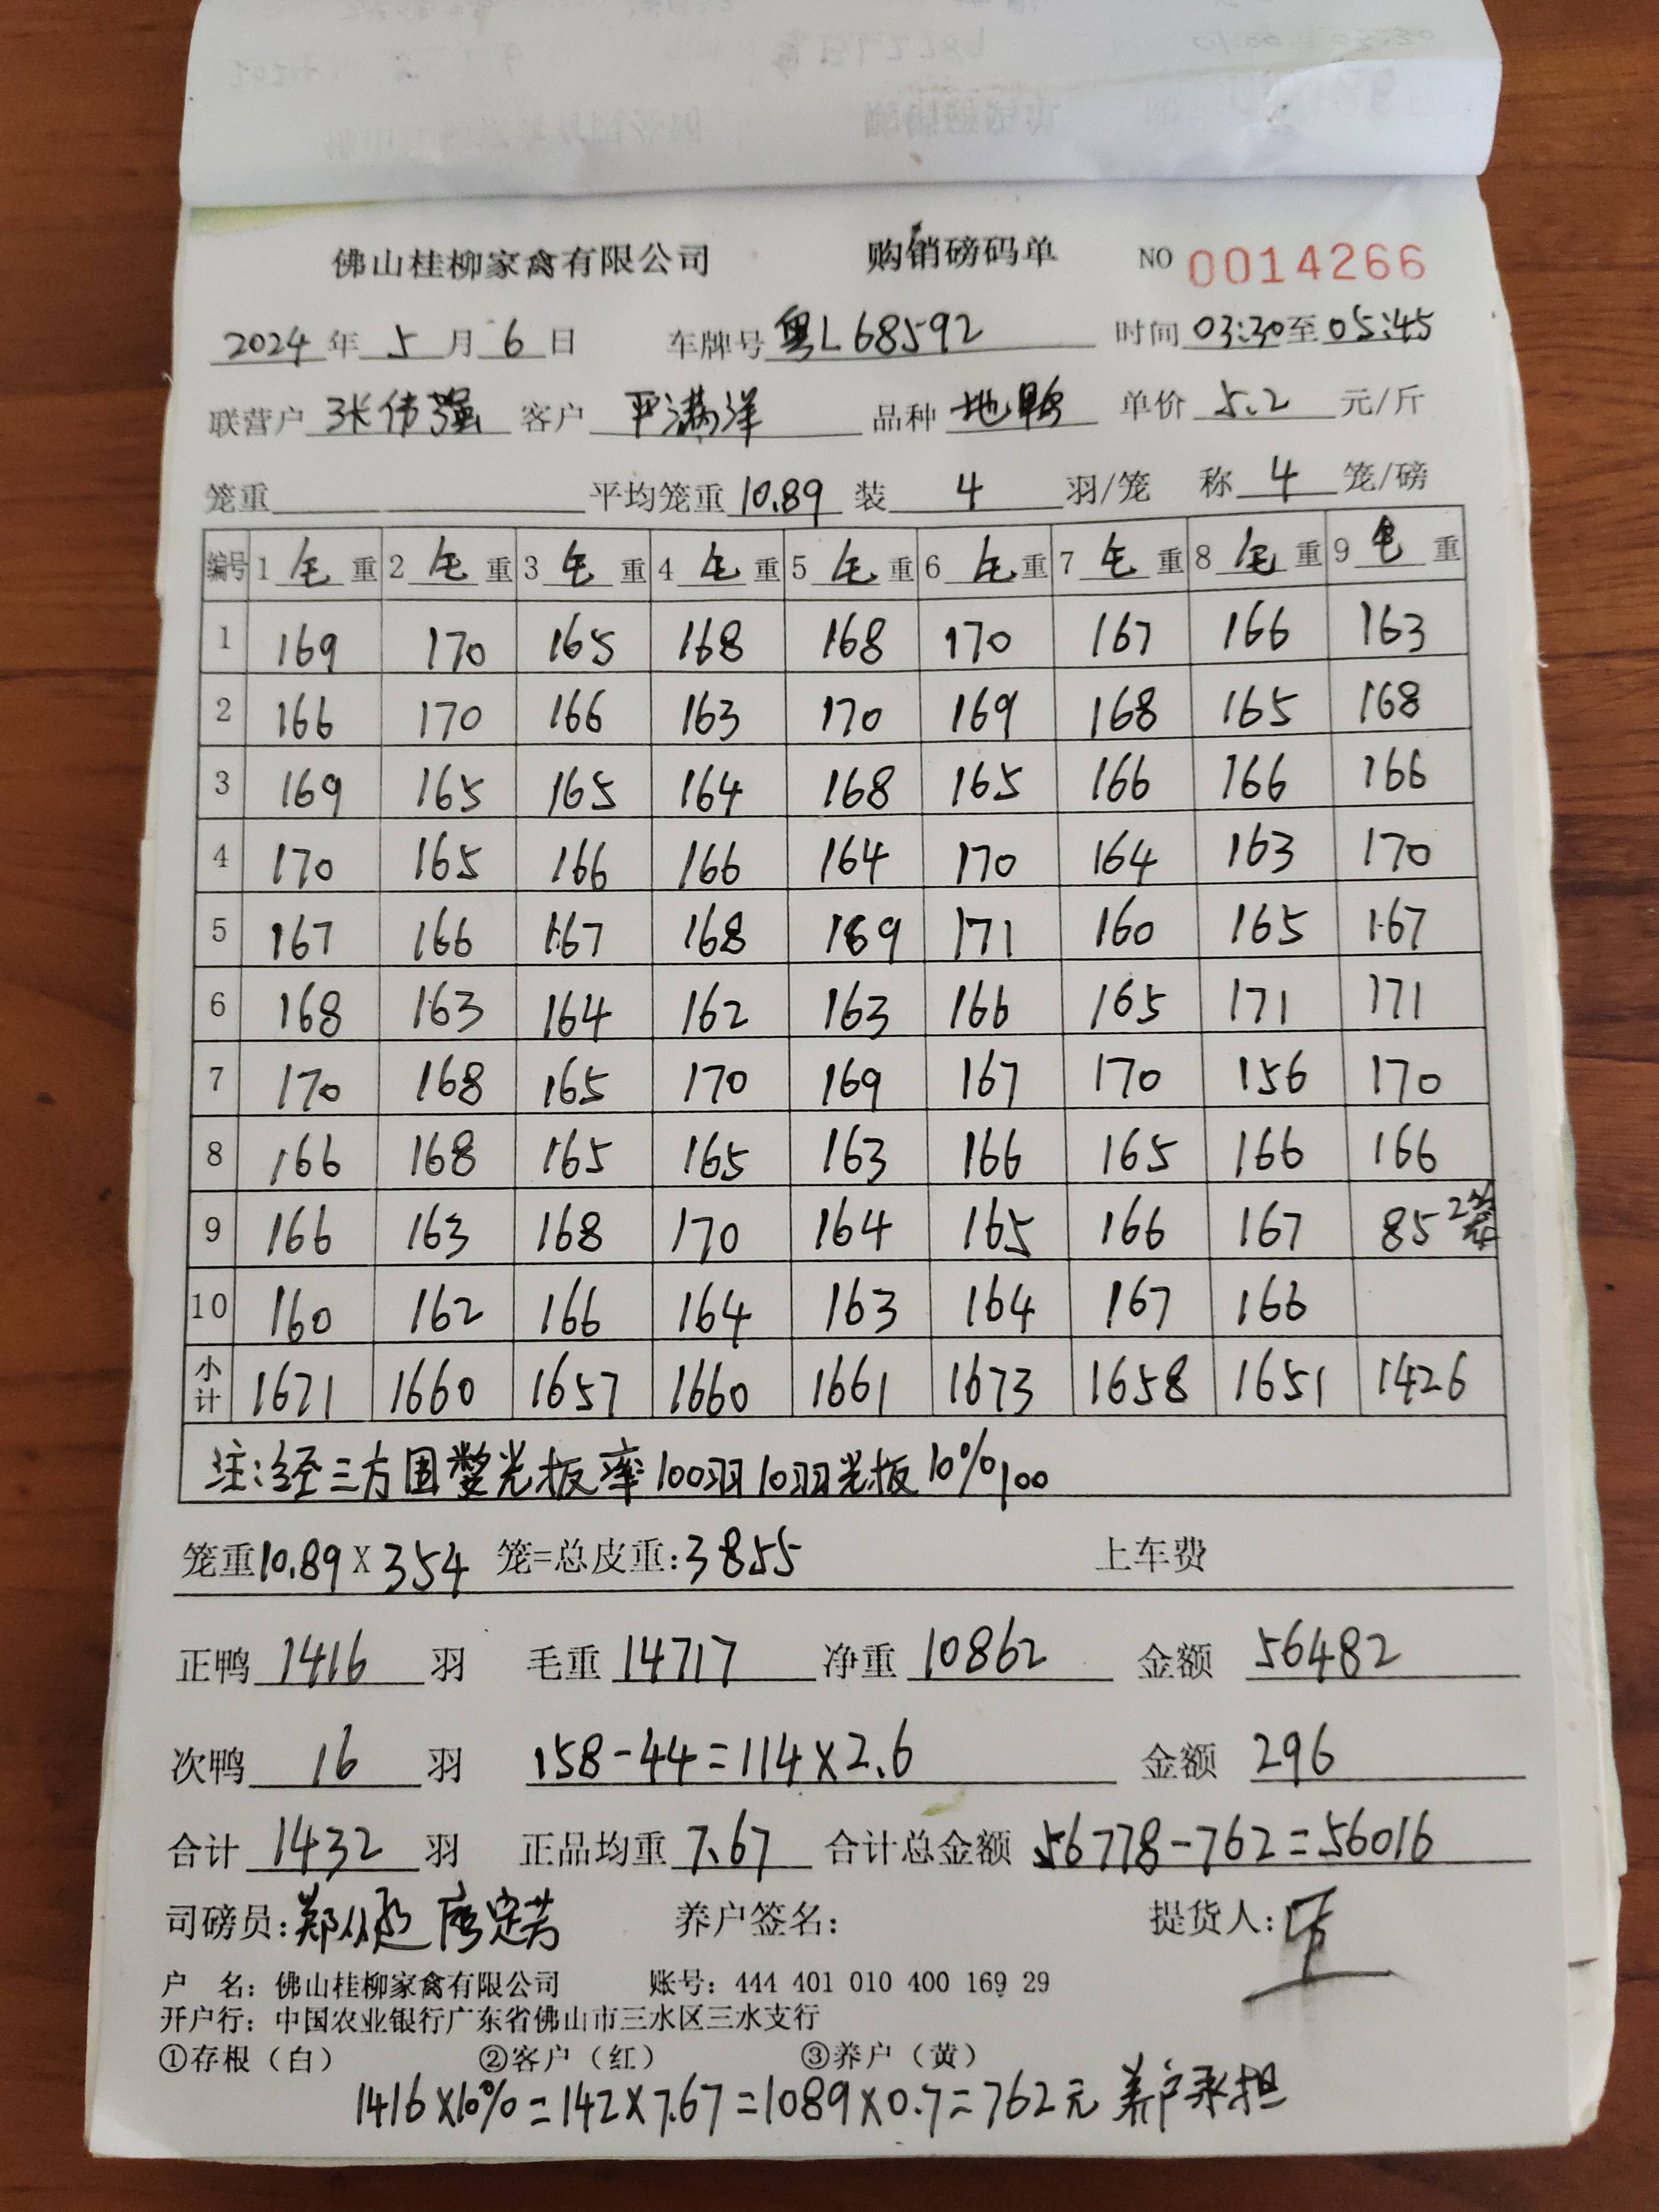 佛山桂柳家禽有限公司 购销磅码单 NO 0014266
2024年5月6日 车牌号 粤L68592 时间 03:30至05:45
联营户 张伟强 客户 平满洋 品种 地鸭 单价 5.2 元/斤
笼重 平均笼重 10.89 装 4 羽/笼 称 4 笼/磅
编号 1 毛重 2 毛重 3 毛重 4 毛重 5 毛重 6 毛重 7 毛重 8 毛重 9 毛重
1 169 170 165 168 168 170 167 166 163
2 166 170 166 163 170 169 168 165 168
3 169 165 165 164 168 165 166 166 166
4 170 165 166 166 164 170 164 163 170
5 167 166 167 168 169 171 160 165 167
6 168 163 164 162 163 166 165 171 171
7 170 168 165 170 169 167 170 156 170
8 166 168 165 165 163 166 165 166 166
9 166 163 168 170 164 165 166 167 85 2笼
10 160 162 166 164 163 164 167 166
小计 1671 1660 1657 1660 1661 1673 1658 1651 1426
注:经三方固整光板率100羽10羽光板10%100
笼重10.89X354 笼=总皮重:3855 上车费
正鸭 1416 羽 毛重 14717 净重 10862 金额 56482
次鸭 16 羽 158-44=114×2.6 金额 296
合计 1432 羽 正品均重 7.67 合计总金额 56778-762=56016
司磅员: 养户签名: 提货人:
户 名:佛山桂柳家禽有限公司 账号:444 401 010 400 169 29
开户行:中国农业银行广东省佛山市三水区三水支行
①存根(白) ②客户(红) ③养户(黄)
1416×10%=142×7.67=1089×0.7=762元 养户承担